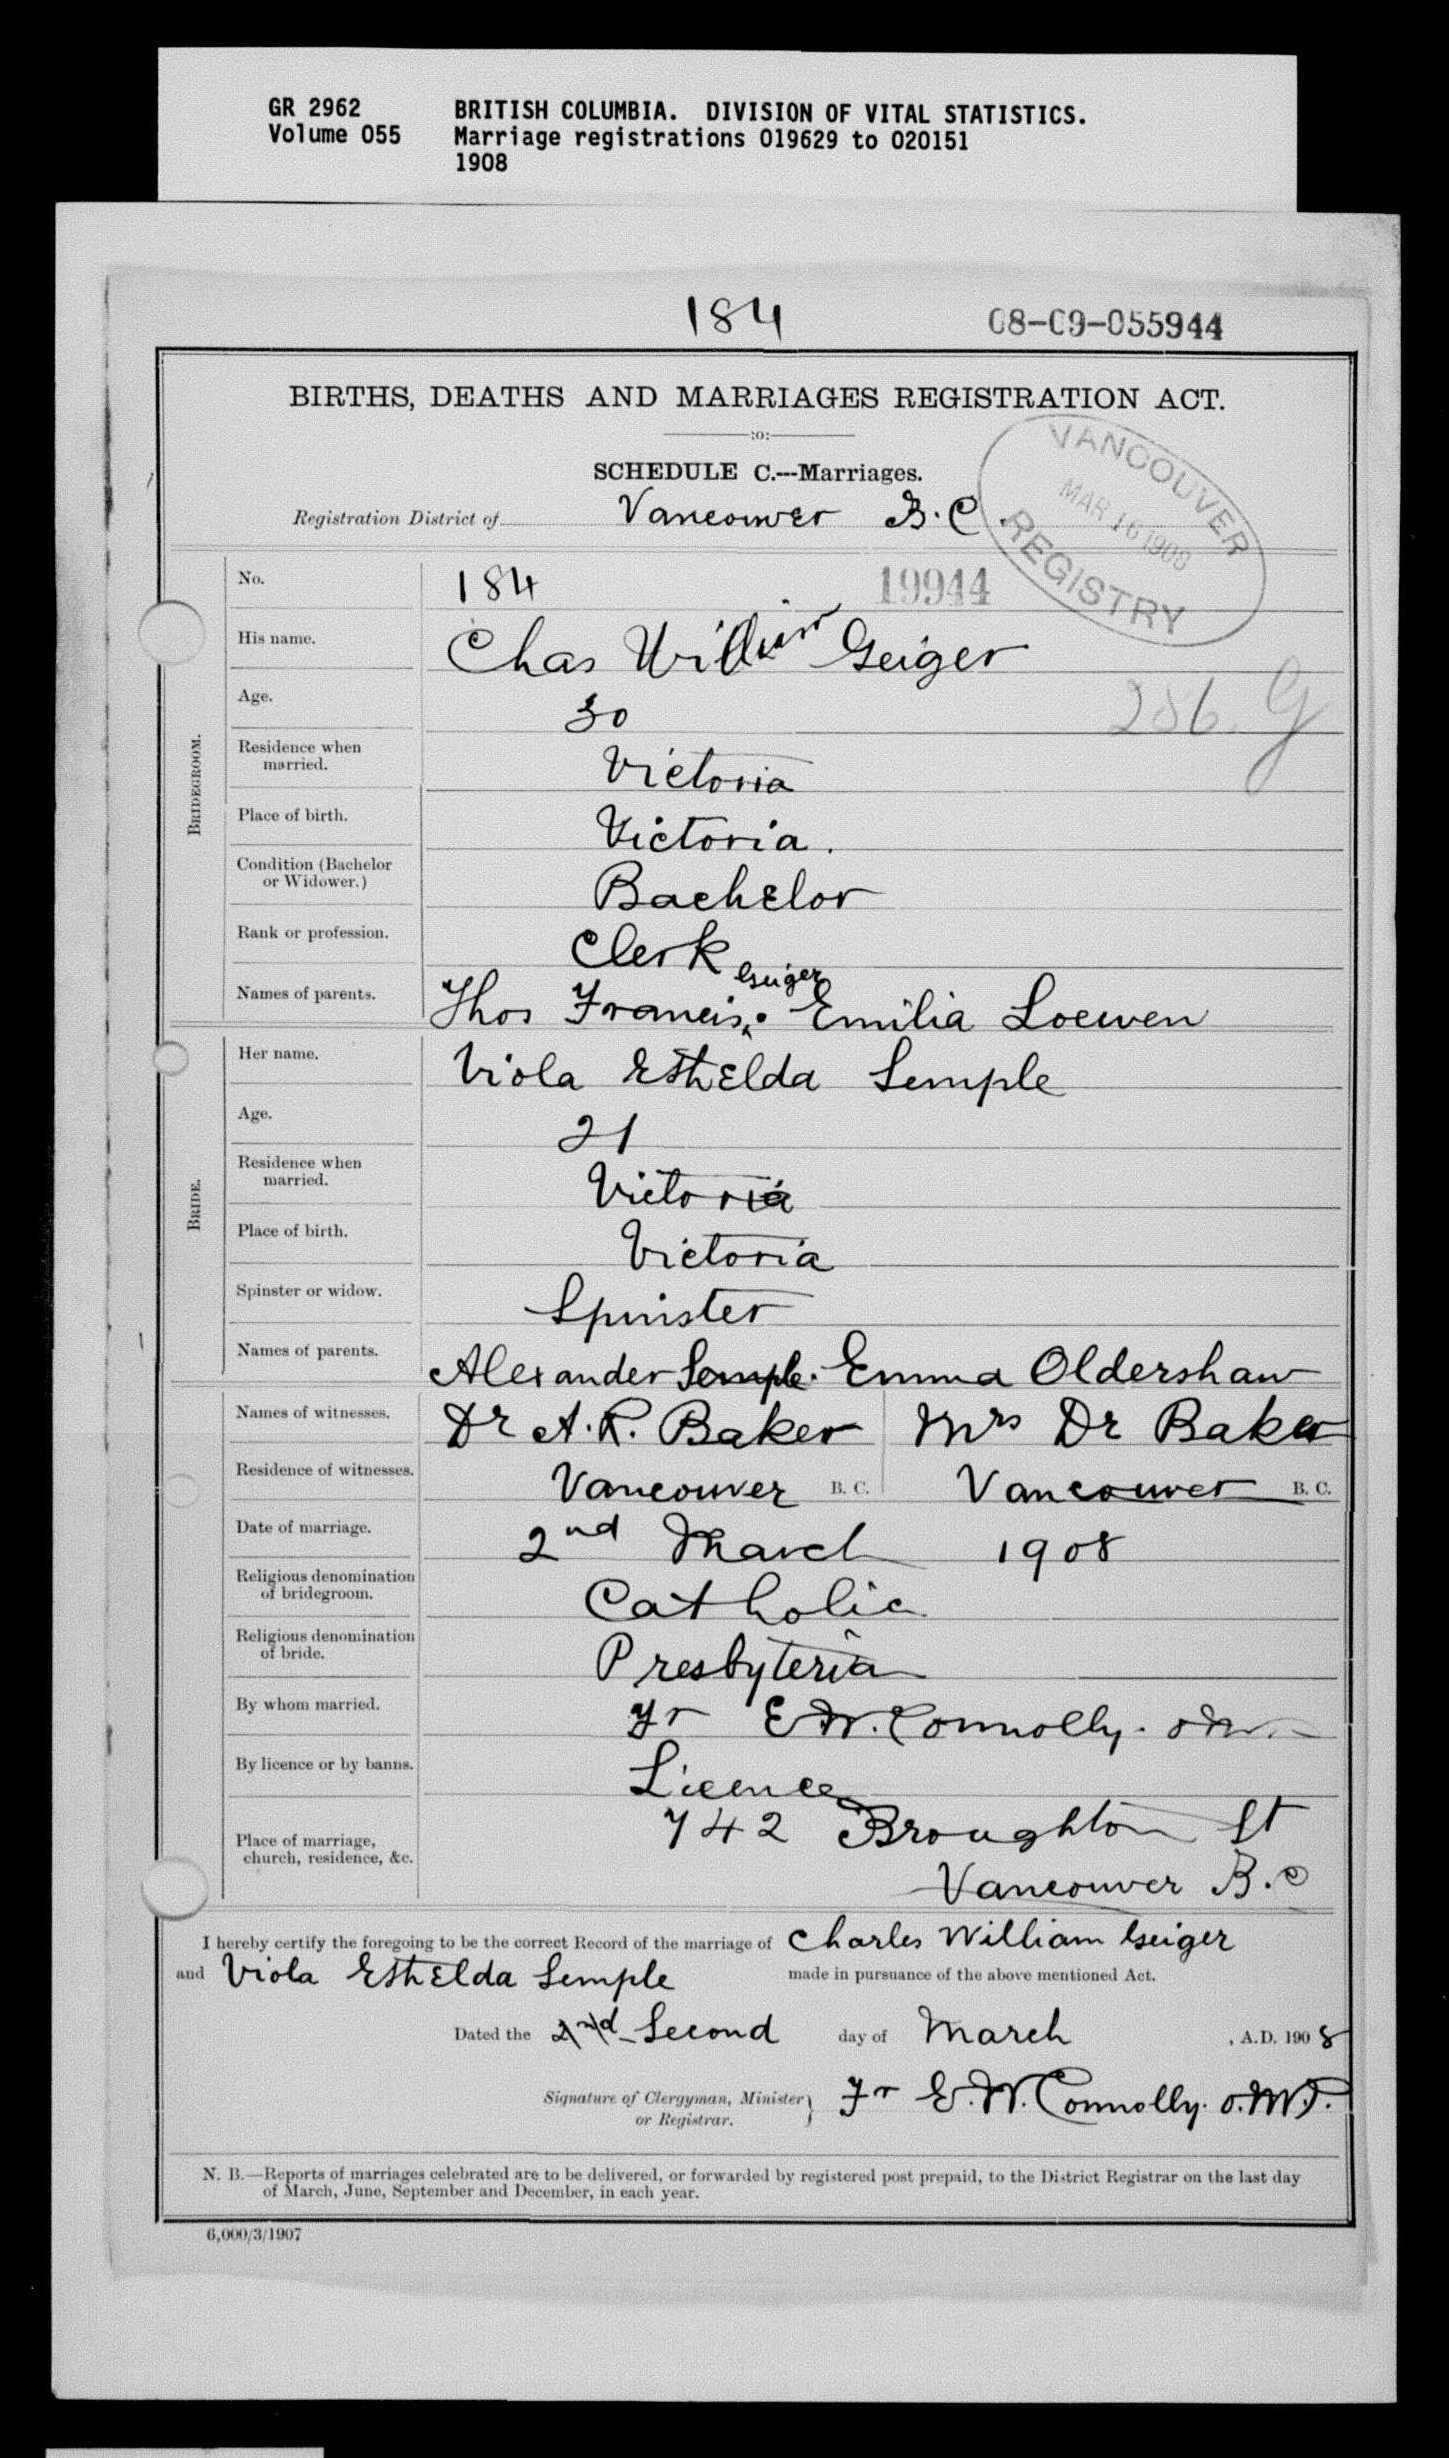 GR 2962 BRITISH COLUMBIA. DIVISION OF VITAL STATISTICS.
Volume 055 Marriage registrations 019629 to 020151
1908
184 08-09-055944
BIRTHS, DEATHS AND MARRIAGES REGISTRATION ACT.
:o:
SCHEDULE C.---Marriages.
Registration District of Vancouver B.C.
VANCOUVER
MAR 16 1908
REGISTRY
BRIDEGROOM.
No. 184 19944
His name. Chas William Geiger
Age. 30 286. G
Residence when married. Victoria
Place of birth. Victoria.
Condition (Bachelor or Widower.) Bachelor
Rank or profession. Clerk
Names of parents. Thos Francis Geiger. Emilia Loewen
BRIDE.
Her name. Viola Esthelda Semple
Age. 21
Residence when married. Victoria
Place of birth. Victoria
Spinster or widow. Spinster
Names of parents. Alexander Semple. Emma Oldershaw
Names of witnesses. Dr A. R. Baker Mrs Dr Baker
Residence of witnesses. Vancouver B. C. Vancouver B. C.
Date of marriage. 2nd March 1908
Religious denomination of bridegroom. Catholic
Religious denomination of bride. Presbyteria
By whom married. Fr E.W. Connolly.
By licence or by banns. Licence
Place of marriage, church, residence, &c. 742 Broughton St
Vancouver B.C
I hereby certify the foregoing to be the correct Record of the marriage of Charles William Geiger
and Viola Esthelda Semple made in pursuance of the above mentioned Act.
Dated the 2nd Second day of March , A.D. 1908
Signature of Clergyman, Minister or Registrar. Fr E.W. Connolly. O.M.I.
N. B.—Reports of marriages celebrated are to be delivered, or forwarded by registered post prepaid, to the District Registrar on the last day
of March, June, September and December, in each year.
6,000/3/1907